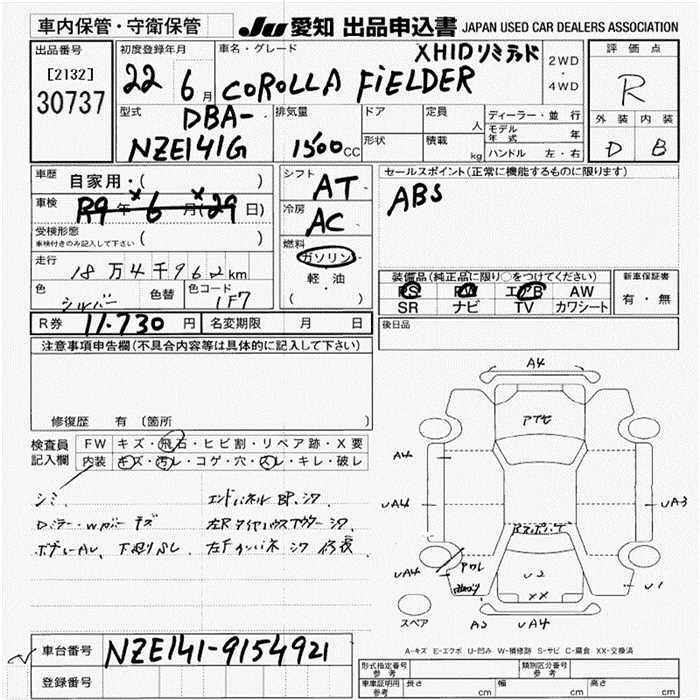 車内保管・守衛保管
JU 愛知 出品申込書 JAPAN USED CAR DEALERS ASSOCIATION
出品番号
[2132]
30737
初度登録年月
22 6月
車名・グレード
XHIDリミテッド
COROLLA FiELDER
2WD
・
4WD
評価点
R
外装 内装
D B
型式
DBA-
NZE141G
排気量
1500cc
ドア
形状
定員 人
積載 kg
ディーラー・並行
モデル年式 年
ハンドル 左・右
車歴 自家用・( )
車検 R9年 6月(29日)
受検形態
車検付きのみ記入して下さい ( )
走行
18万4千962km
色 シルバー 色替 色コード 1F7
シフト AT
冷房 AC
燃料
ガソリン
・
軽油
( )
セールスポイント(正常に機能するものに限ります)
ABS
装備品(純正品に限り○をつけてください)
PS PW エアB AW
SR ナビ TV カワシート
新車保証書
有・無
R券 11.730円 名変期限 月 日
後日品
注意事項申告欄(不具合内容等は具体的に記入して下さい)
修復歴 有(箇所 )
検査員記入欄
FW キズ・飛石・ヒビ割・リペア跡・X要
内装 キズ・汚レ・コゲ・穴・スレ・キレ・破レ
シミ、 エンドパネルBP、シワ
左Rタイヤハウスアウターシワ、
下廻りサビ
A4
A4
UA4
UA3
UA4
U2
XX
U1
A2 UA4
スペア
A-キズ E-エクボ U-凹み W-補修跡 S-サビ C-腐食 XX-交換済
車台番号 NZE141-9154921
登録番号
形式指定番号 参考
類別区分番号 参考
車庫証明用 参考 長さ cm 幅 cm 高さ cm